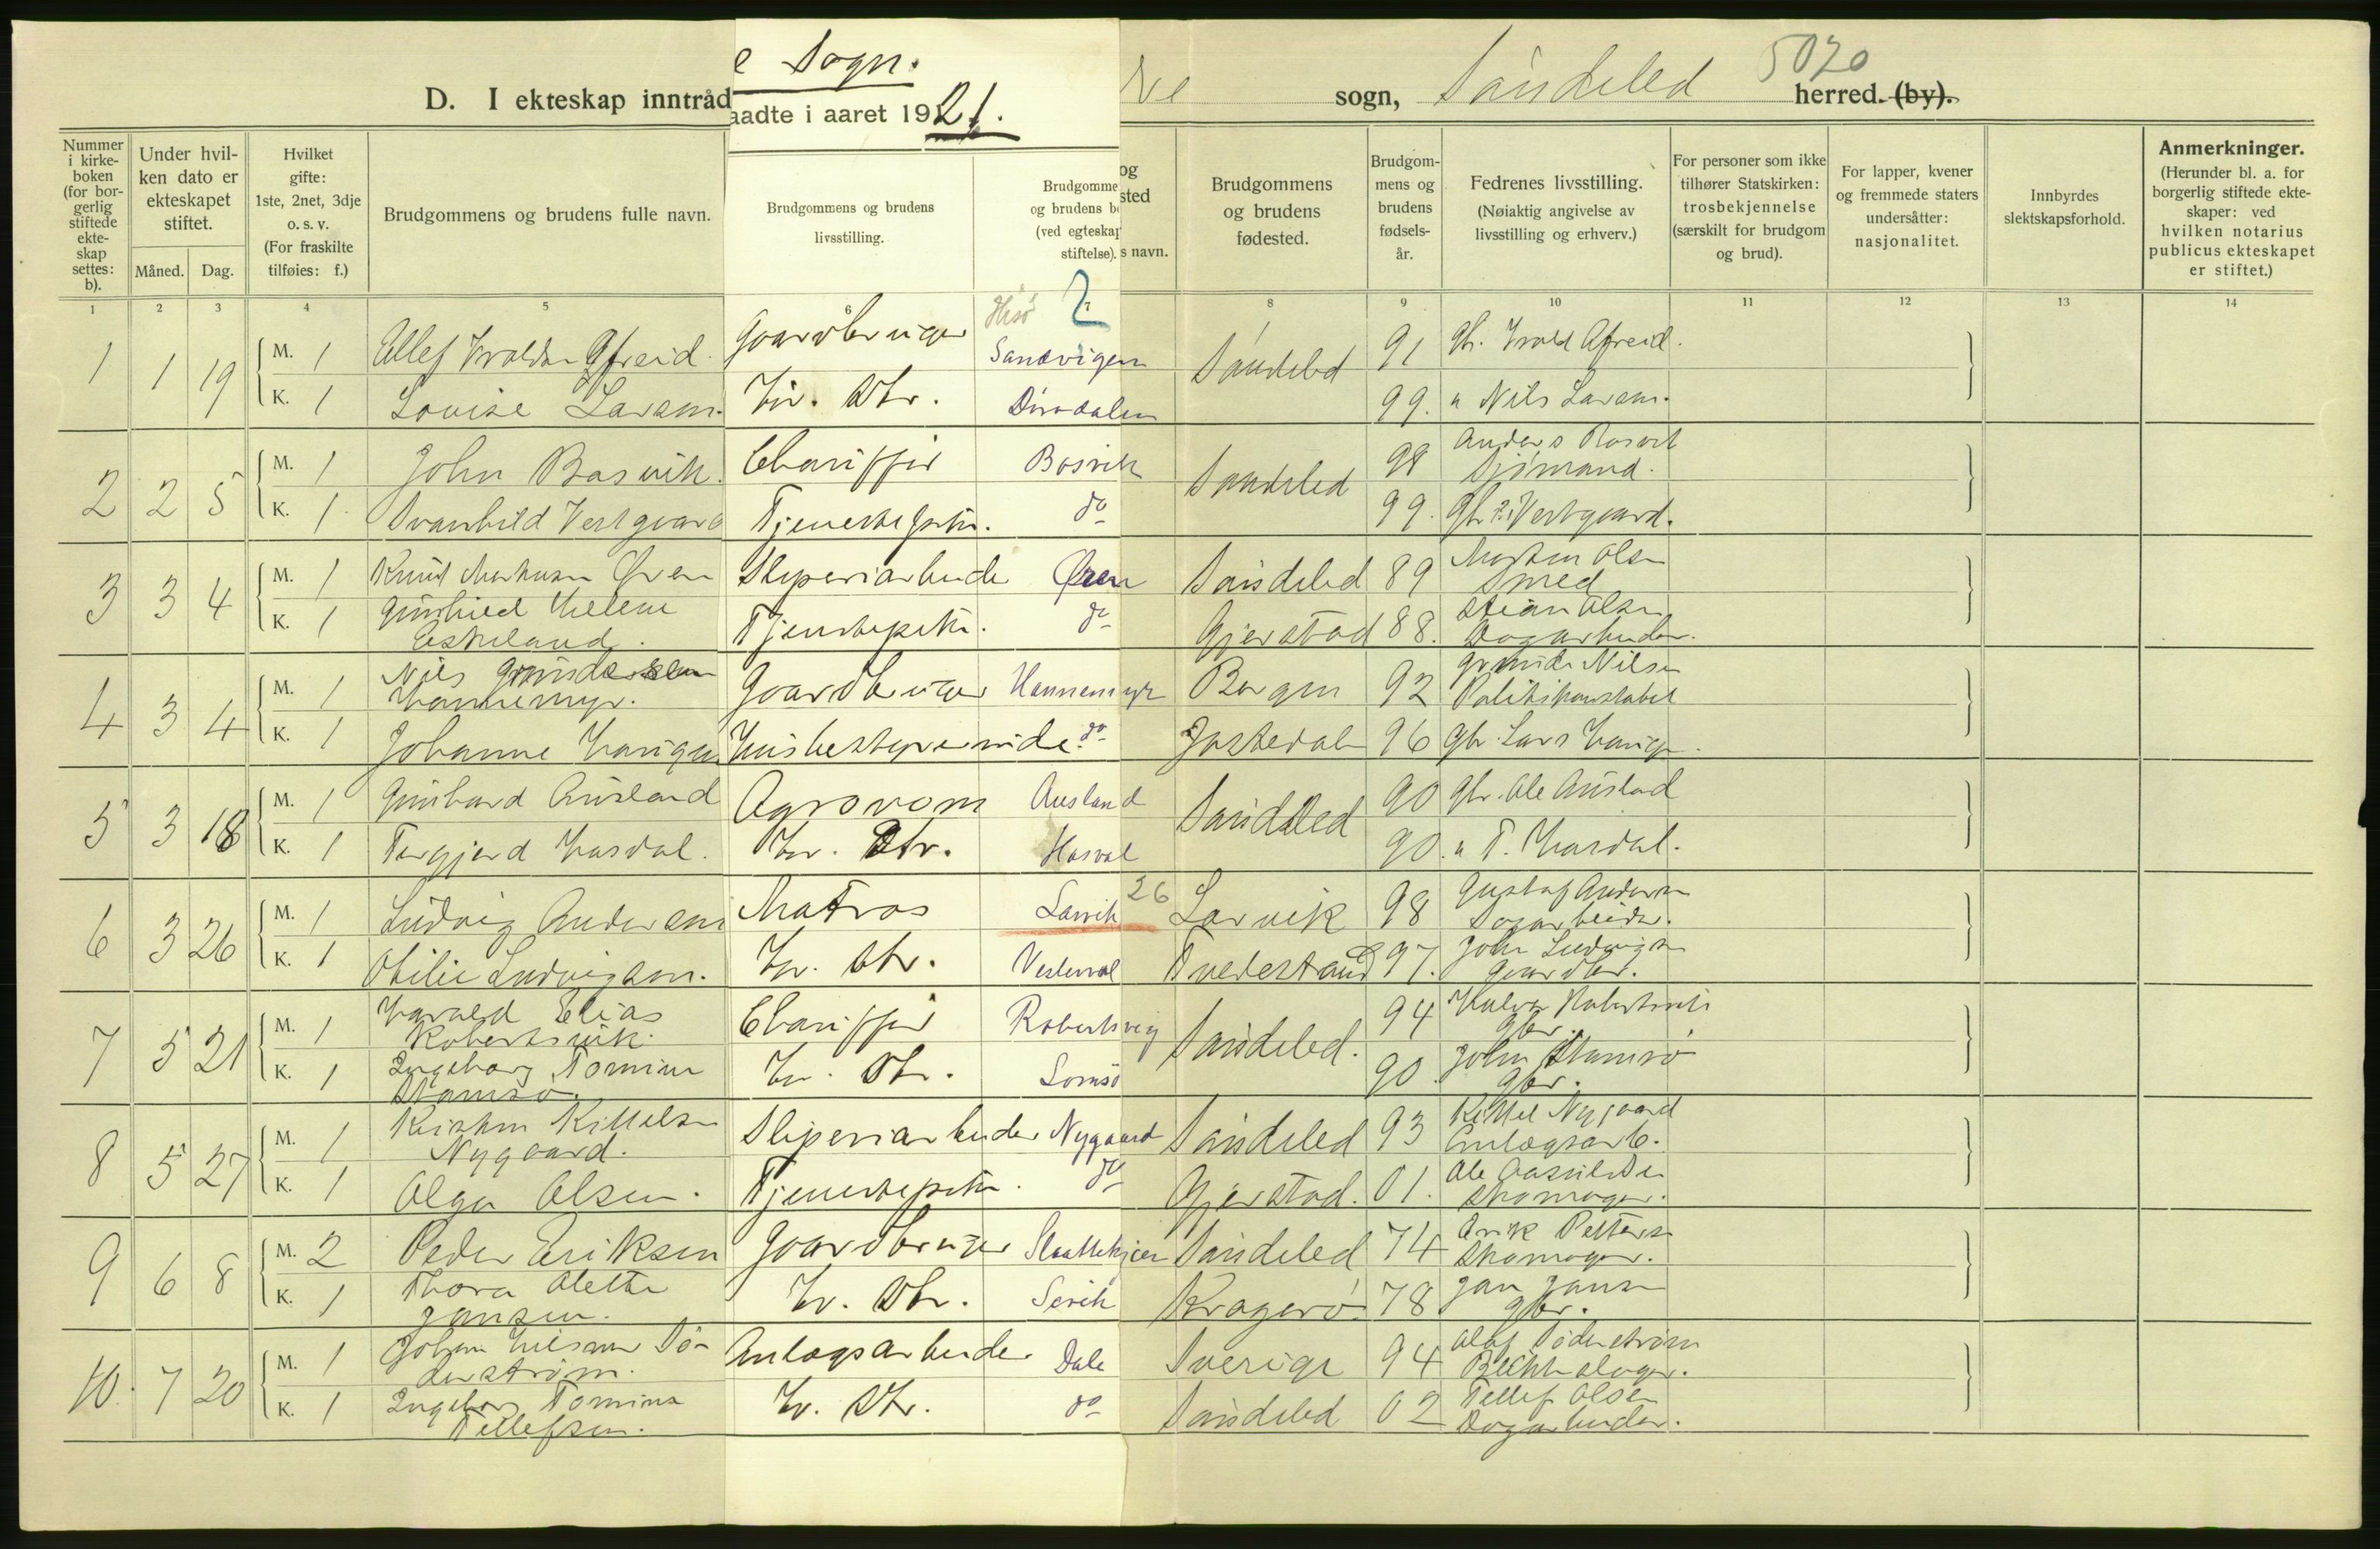 e Sogn.
5020
D. I ekteskap inntråd
aadte i aaret 1921.
sogn, Söndeled herred. (by).
Nummer i kirke- boken (for bor- gerlig stiftede ekte- skap settes: b).
Under hvil- ken dato er ekteskapet stiftet.
Måned. Dag.
Hvilket gifte: 1ste, 2net, 3dje o. s. v. (For fraskilte tilføies: f.)
Brudgommens og brudens fulle navn.
Brudgommens og brudens livsstilling.
Brudgomme og brudens bo (ved egteskap stiftelse).
og sted s navn.
Brudgommens og brudens fødested.
Brudgom- mens og brudens fødsels- år.
Fedrenes livsstilling. (Nøiaktig angivelse av livsstilling og erhverv.)
For personer som ikke tilhører Statskirken: trosbekjennelse (særskilt for brudgom og brud).
For lapper, kvener og fremmede staters undersåtter: nasjonalitet.
Innbyrdes slektskapsforhold.
Anmerkninger. (Herunder bl. a. for borgerlig stiftede ekte- skaper: ved hvilken notarius publicus ekteskapet er stiftet.)
1 2 3 4 5 6 7 8 9 10 11 12 13 14
Hisö 2
1 1 19 M. 1 Gaardbruger Sandvigen Söndeled 91
K. 1 Louise Larsen. Hv. Dtr. 99. " Nils Larsen.
2 2 5 M. 1 John Bosvik. Chauffør Bosvik Söndeled 98 Anders Bosvik Sjömand.
K. 1 Svanhild Vestgaard Tjenestepike. do 99. Gbr. Vestgaard.
3 3 4 M. 1 Knut Markusen Øren Sliperiarbeider Øren Söndeled 89 Olsen Smed
K. 1 Gunhild Helene Eskeland. Tjenestepike. do Gjerstad 88. Stian Olsen Dagarbeider.
4 3 4 M. 1 Nils Hannemyr. Gaardbruger Hannemyr Bergen 92 Nilsen Politikonstabel
K. 1 Johanne Husbestyrerinde. do Jostedal 96 Gbr. Lars
5 3 18 M. 1 Gunvald Ausland Agronom Ausland Söndeled 90 Gbr. Ole Ausland
K. 1 Torgjerd Hasdal. Hv. Dtr. Hasdal 90. " T. Hasdal.
6 3 26 M. 1 Ludvig Andersen Matros Larvik 26 Larvik 98 Gustaf Andersen Dagarbeider.
K. 1 Otilie Ludvigsen. Hv. Dtr. Tvedestrand 97. John Ludvigsen Gaardbr.
7 5 21 M. 1 Harald Elias Robertsvik. Chauffør Robertsvig Söndeled. 94 Halvor Robertsvik Gbr.
K. 1 Ingeborg Tomine Stamsö. Hv. Dtr. 90 John Stamsö Gbr.
8 5 27 M. 1 Kristen Kittelsen Nygaard. Sliperiarbeider Nygaard Söndeled 93 Kittel Nygaard Anlægsarb.
K. 1 Olga Olsen. Tjenestepike. do Gjerstad. 01. Ole Skomager.
9 6 8 M. 2 Peder Eriksen Gaardbruger Slaattekjær Söndeled 74 Erik Pettersen Skomager.
K. 1 Thora Olette Jansen. Hv. Dtr. Sevik Kragerö 78 Jan Jansen Gbr.
10. 7 20 M. 1 Johan Sö- derström. Anlægsarbeider Dale Sverige 94 Olaf Söderström Blikkslager.
K. 1 Ingeborg Tomine Tellefsen. Hv. Dtr. do Söndeled 02 Tellef Olsen Dagarbeider.